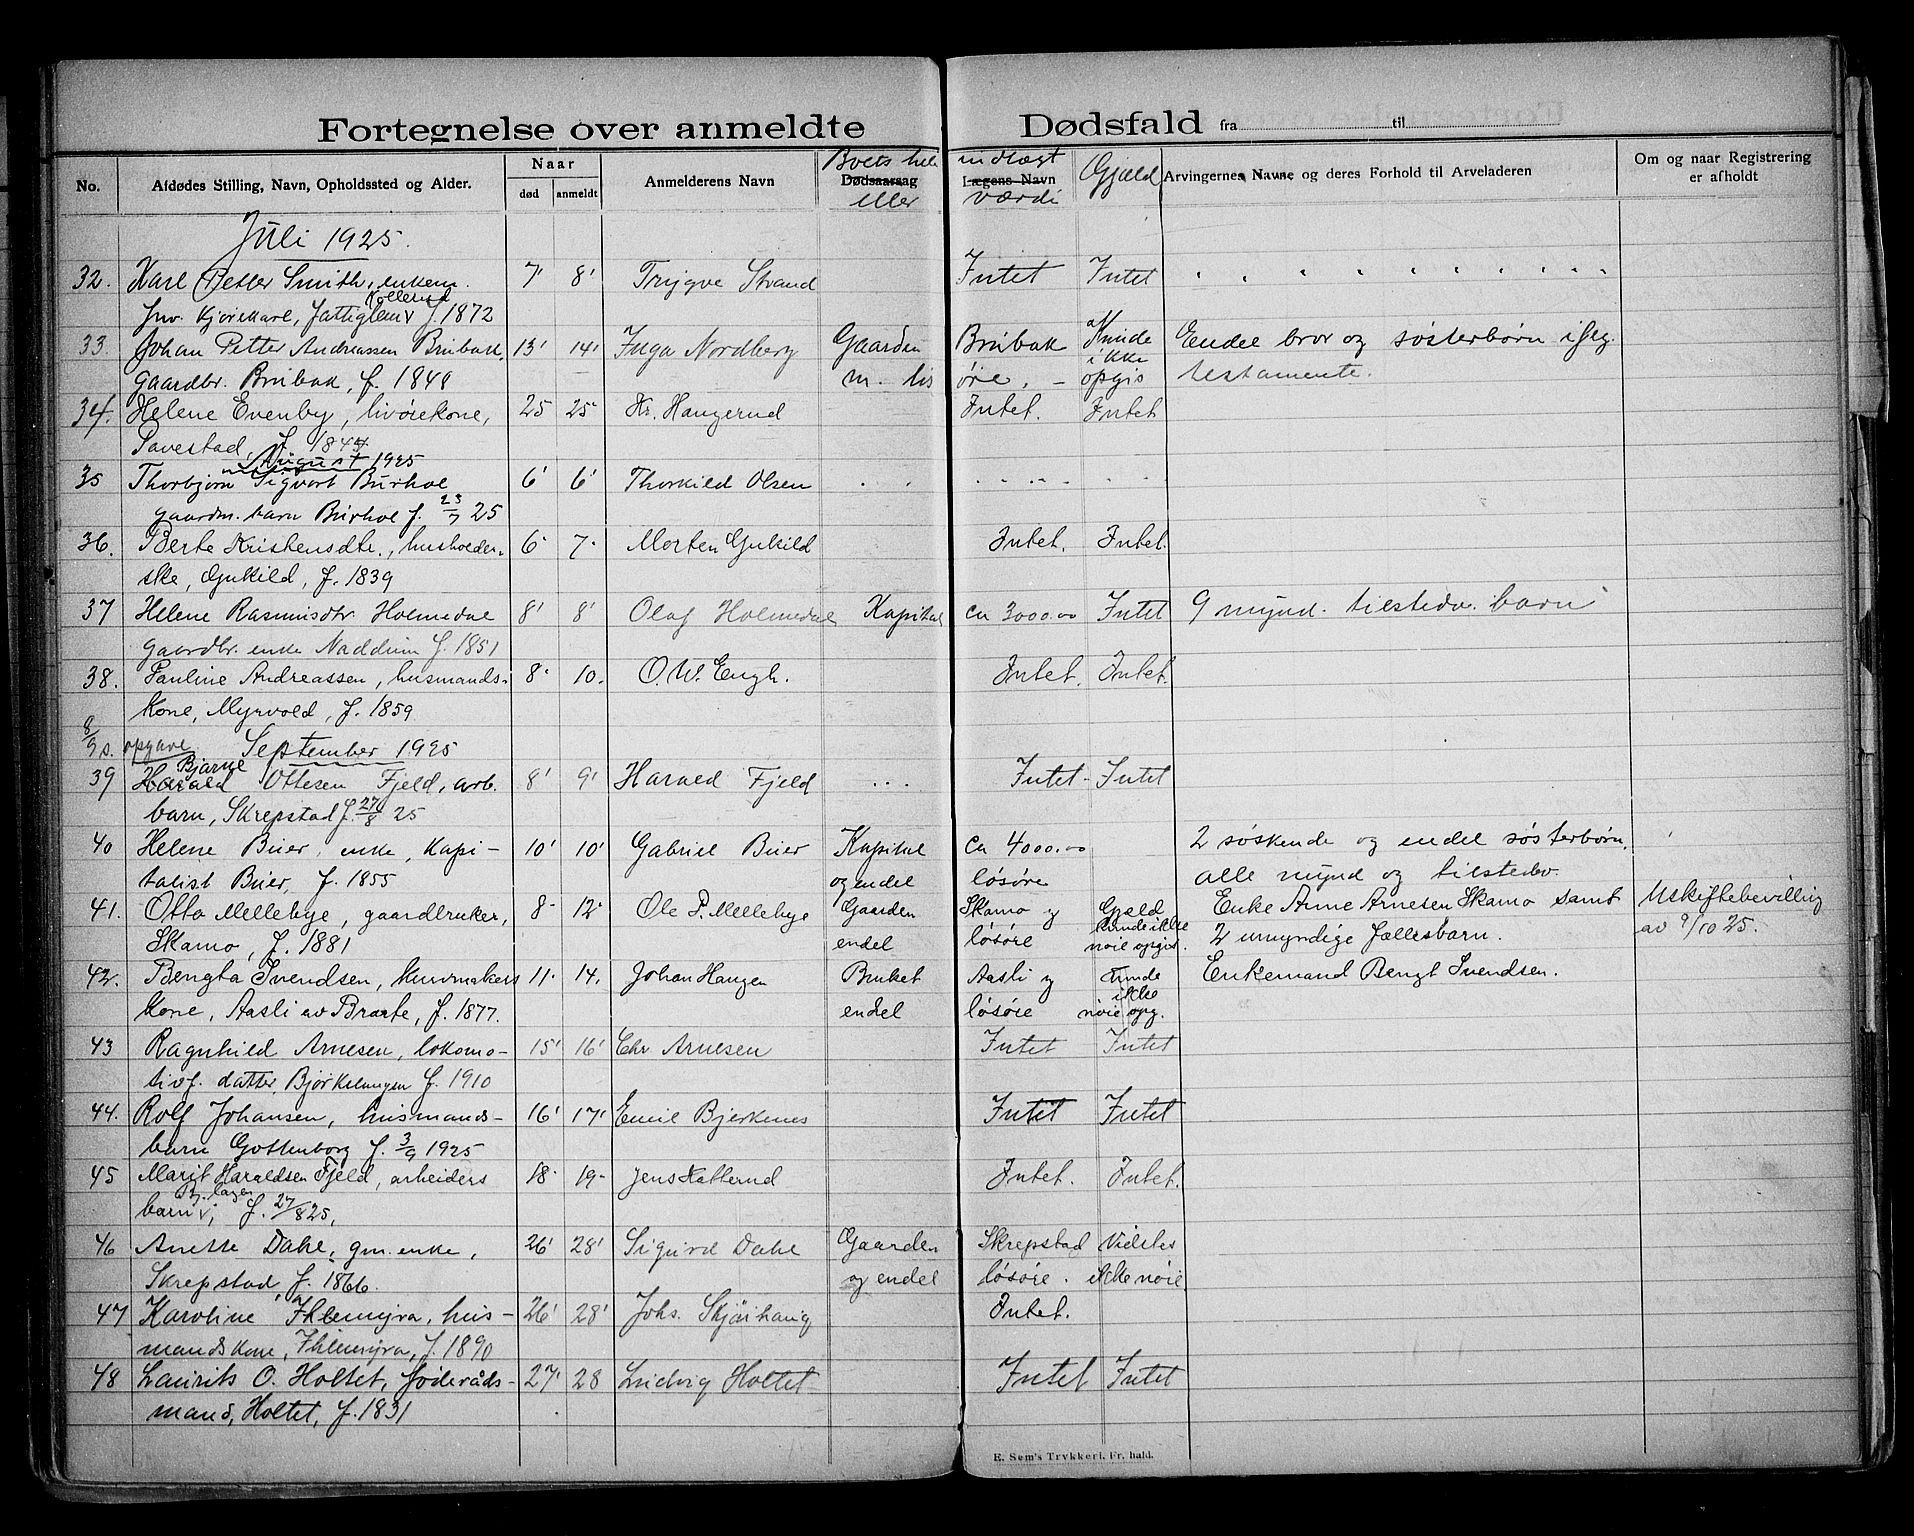 Fortegnelse over anmeldte Dødsfald fra til
No. Afdødes Stilling, Navn, Opholdssted og Alder. Naar død anmeldt Anmelderens Navn Dødsaarsag Lægens Navn Gjæld Arvingernes Navne og deres Forhold til Arveladeren Om og naar Registrering er afholdt
Boets hele indlægt
eller værdi
Juli 1925.
32. Karl Petter Smith, enkem. 7' 8' Trygve Strand Intet Intet
Kollerud
Inv. Kjørekarl, Fattiglem f. 1872
33 Johan Petter Andreassen Brubak, 13' 14' Inga Nordberg Gaarden Brubak Kunde Endel bror og søsterbørn iflg.
gaardbr. Brubak, f. 1848 m. løsøre. ikke opgis testamente.
34. Helene Evenby, livørekone, 25 25 Kr. Haugerud Intet. Intet
Tavestad, f. 1844
August 1925
35 Thorbjørn Sigvart Burhol 6' 6' Thorkild Olsen
gaardm. barn Burhol f. 23/7 25
36. Berte Kristensdtr., husholder- 6 7 Morten Gukild Intet. Intet.
ske, Gukild, f. 1839
37 Helene Rasmusdtr Holmedal 8' 8' Olaf Holmedal Kapital ca 3000.00 Intet 9 mynd. tilstedv. barn
gaardbr. enke Naddum f. 1851
38. Pauline Andreassen, husmands- 8 10. O. W. Engh. Intet. Intet.
kone, Myrvold, f. 1859
8/9 s. opgave September 1925
Bjarne
39 Harald Ottesen Fjeld, arb. 8' 9' Harald Fjeld Intet Intet
barn, Skrepstad f. 27/8 25
40 Helene Buer, enke, Kapi- 10' 10' Gabriel Buer Kapital ca 4000.00 2 søskende og endel søsterbørn,
talist Buer, f. 1855 og endel løsøre alle mynd og tilstedv.
41. Otto Mellebye, gaardbruker, 8 12 Ole P. Mellebye Gaarden Skamo og Gjæld Enke Anne Arnesen Skamo samt Uskiftebevilling
Skamo, f. 1881 endel løsøre kunde ikke nøie opgis. 2 umyndige fællesbarn. av 9/10 25.
42. Bengta Svendsen, kurvmakers 11 14. Johan Haugen Bruket Aasli og kunde Enkemand Bengt Svendsen.
kone, Aasli av Braate, f. 1877. endel løsøre ikke nøie opg.
43 Ragnhild Arnesen, lokomo- 15' 16' Chr Arnesen Intet Intet
tivf. datter, Bjørkelangen f. 1910
44. Rolf Johansen, husmands- 16' 17' Emil Bjerkenes Intet Intet
barn Gottenborg f. 3/9 1925
45 Marit Haraldsen Fjeld, arbeiders 18 19 Jens Kallerud Intet. Intet.
barn f. 27/8 25,
46 Anette Dahl, gm. enke, 26' 28' Sigurd Dahl Gaarden Skrepstad Vidstes
Skrepstad, f. 1866. og endel løsøre. ikke nøie
47 Karoline Ihlemyra, hus- 26' 28' Johs. Skjønhaug Intet.
mandskone, Ihlemyra, f. 1890
48 Laurits O. Holtet, føderåds- 27' 28 Ludvig Holtet Intet Intet
mand, Holtet, f. 1831
E. Sem's Trykkeri, Fr. hald.